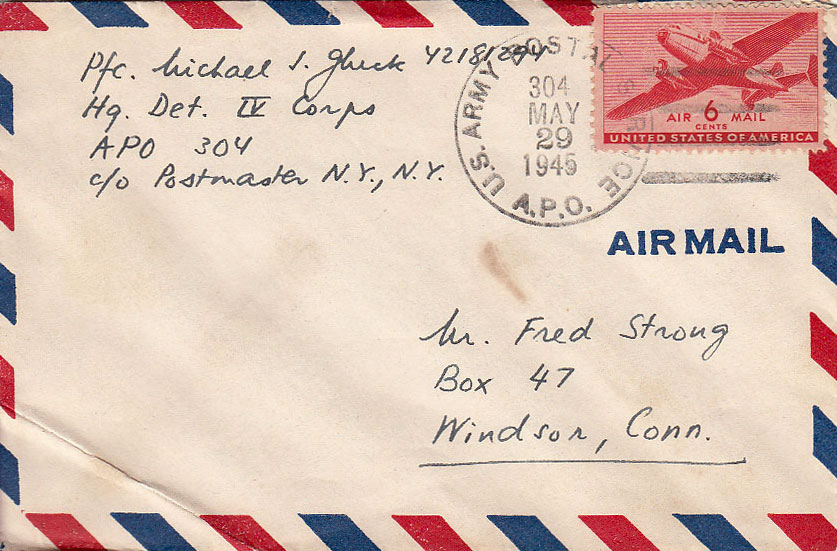 Pfc. Michael J. Gluck 42181294
Hq. Det. IV Corps
APO 304
c/o Postmaster N.Y., N.Y.
U.S. ARMY POSTAL SERVICE
304
MAY
29
1945
A.P.O.
AIR 6 MAIL
CENTS
UNITED STATES OF AMERICA
AIR MAIL
Mr. Fred Strong
Box 47
Windsor, Conn.